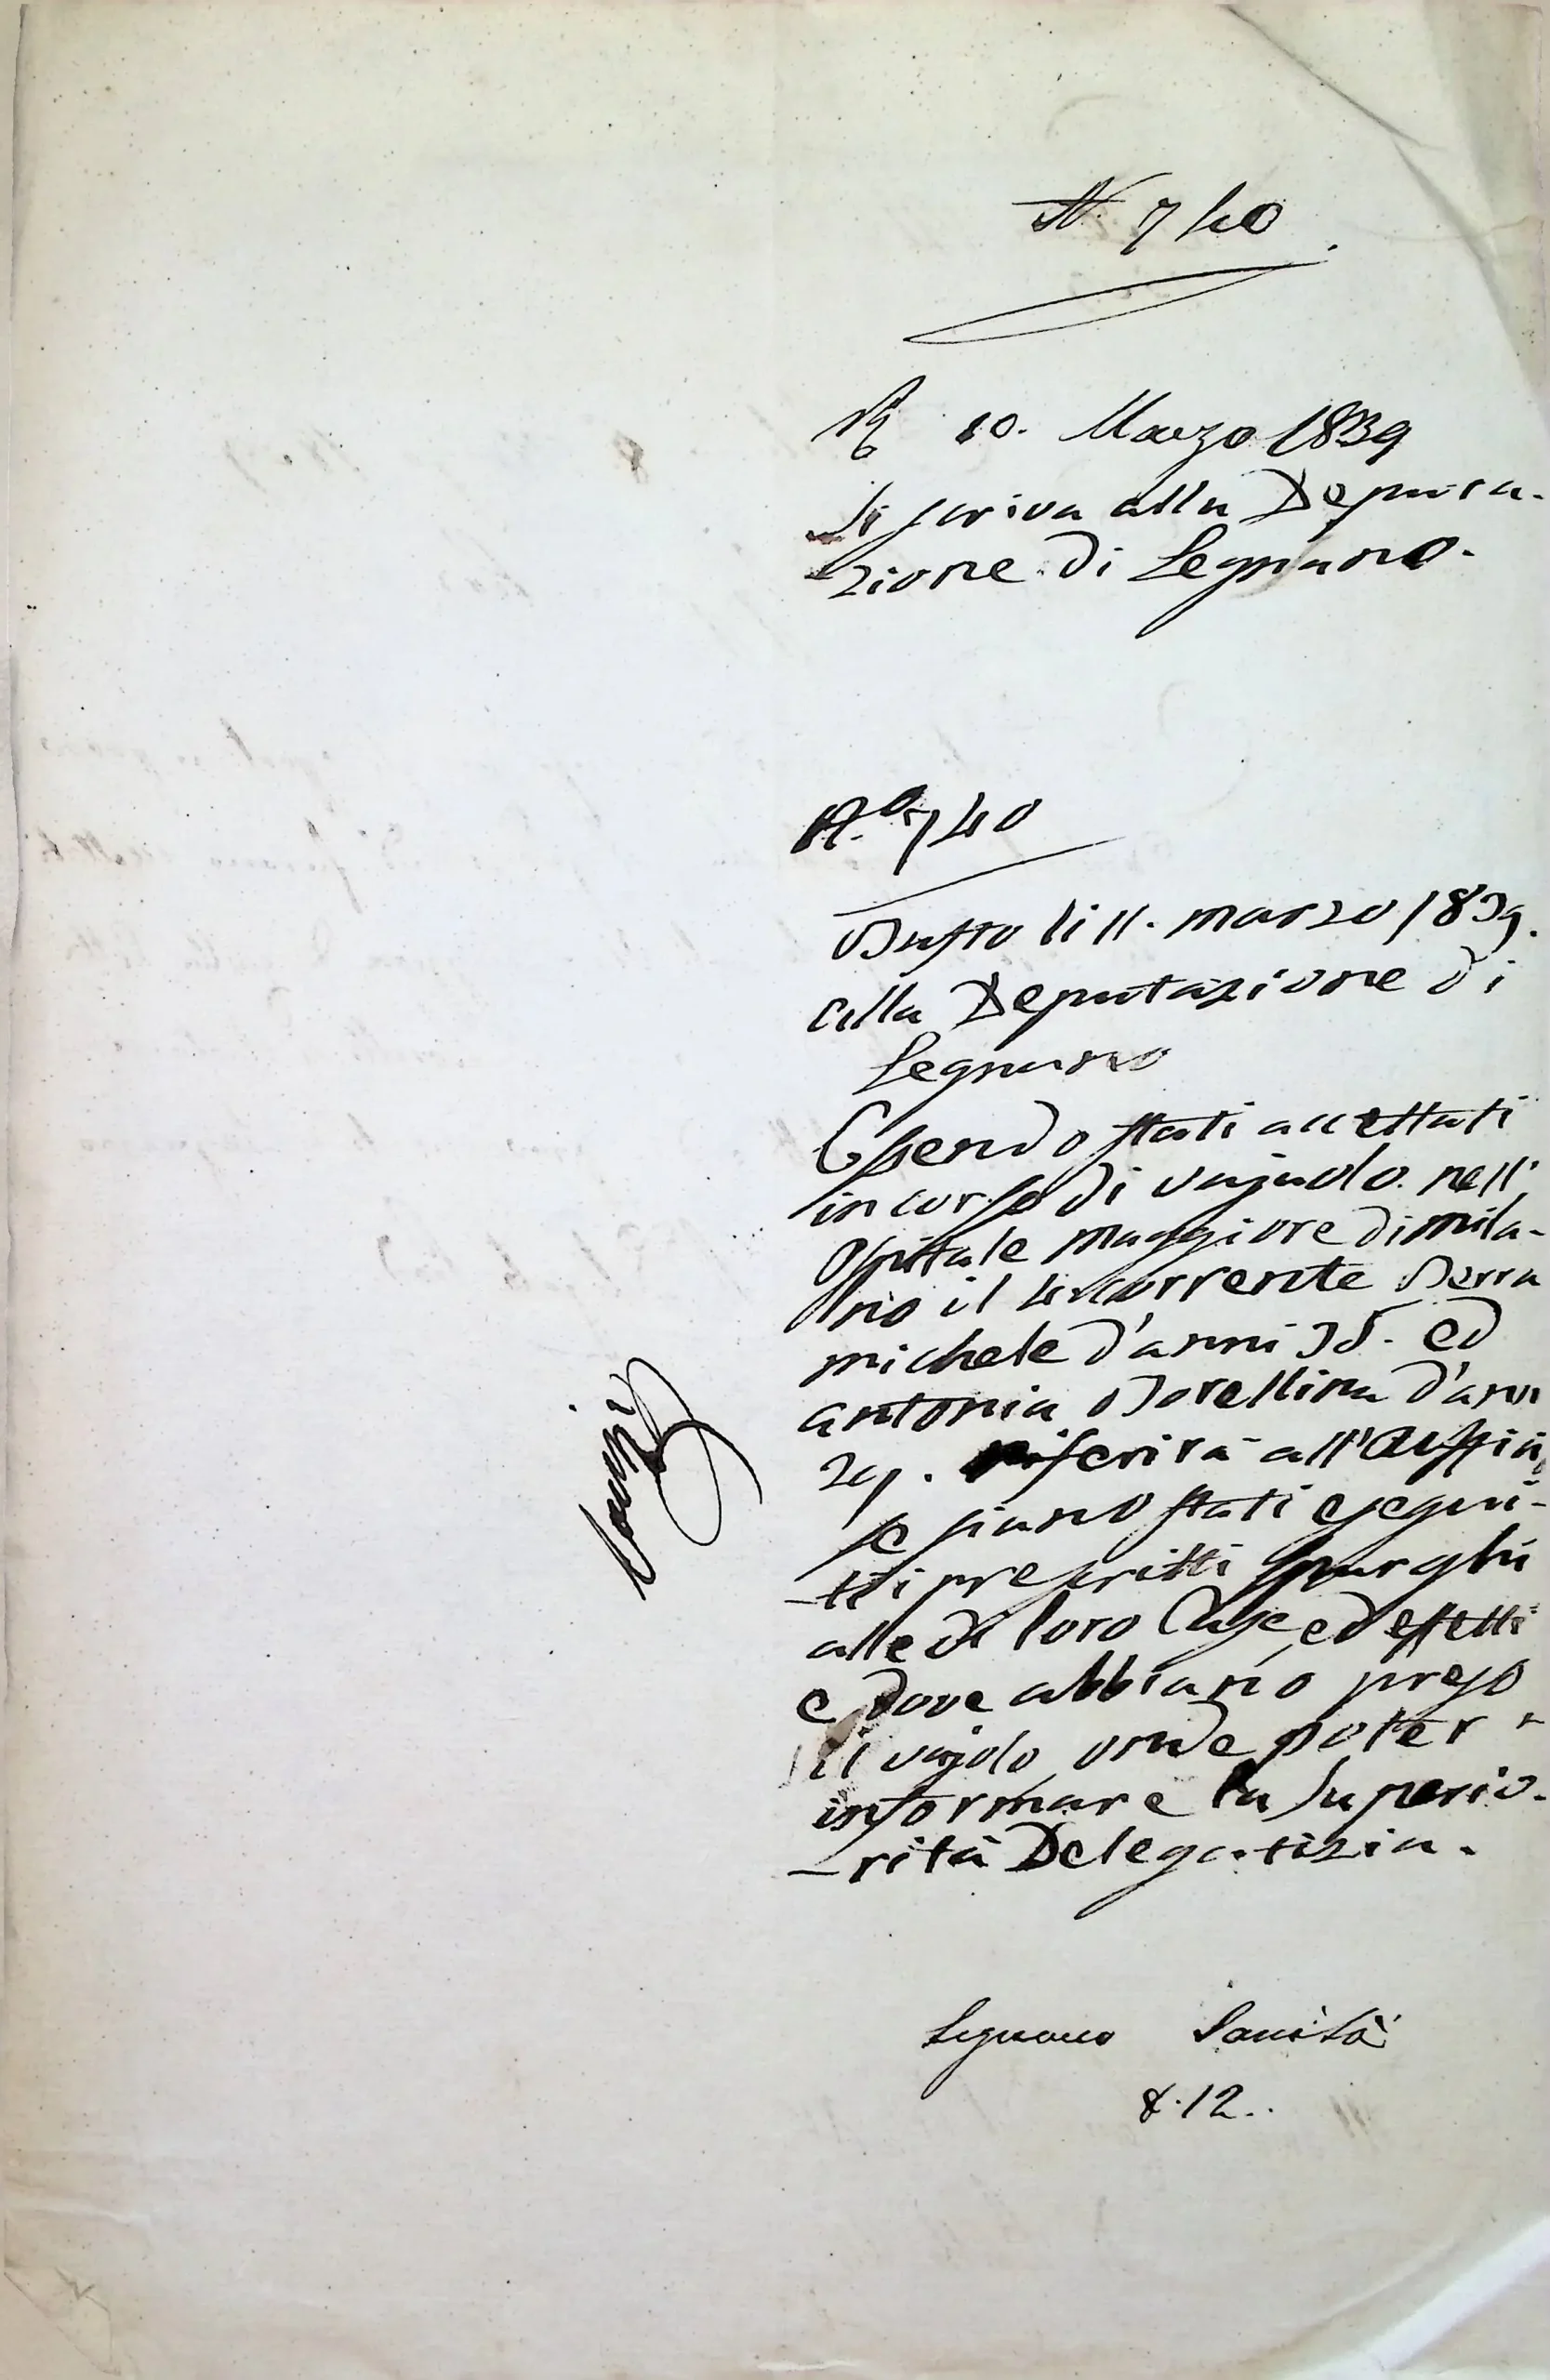 N. 740
R 10. Marzo 1839
Si scriva alla Deputa-
zione di Legnano.
N.º 740
Busto li 11. marzo 1839.
alla Deputazione di
Legnano
Essendo stati accettati
in corso di vajuolo nell'
Ospitale maggiore di mila-
no il 4 corrente Serra
michele d'anni 35. ed
antonia Borellina d'ann
29. riferirà all'Uffici
se siano stati esegui-
ti i prescritti spurghi
alle di loro Case, ed effetti
e dove abbiano preso
il vajolo onde poter
informare la Superio-
rità Delegatizia.
Legnano Sanità
&.12..